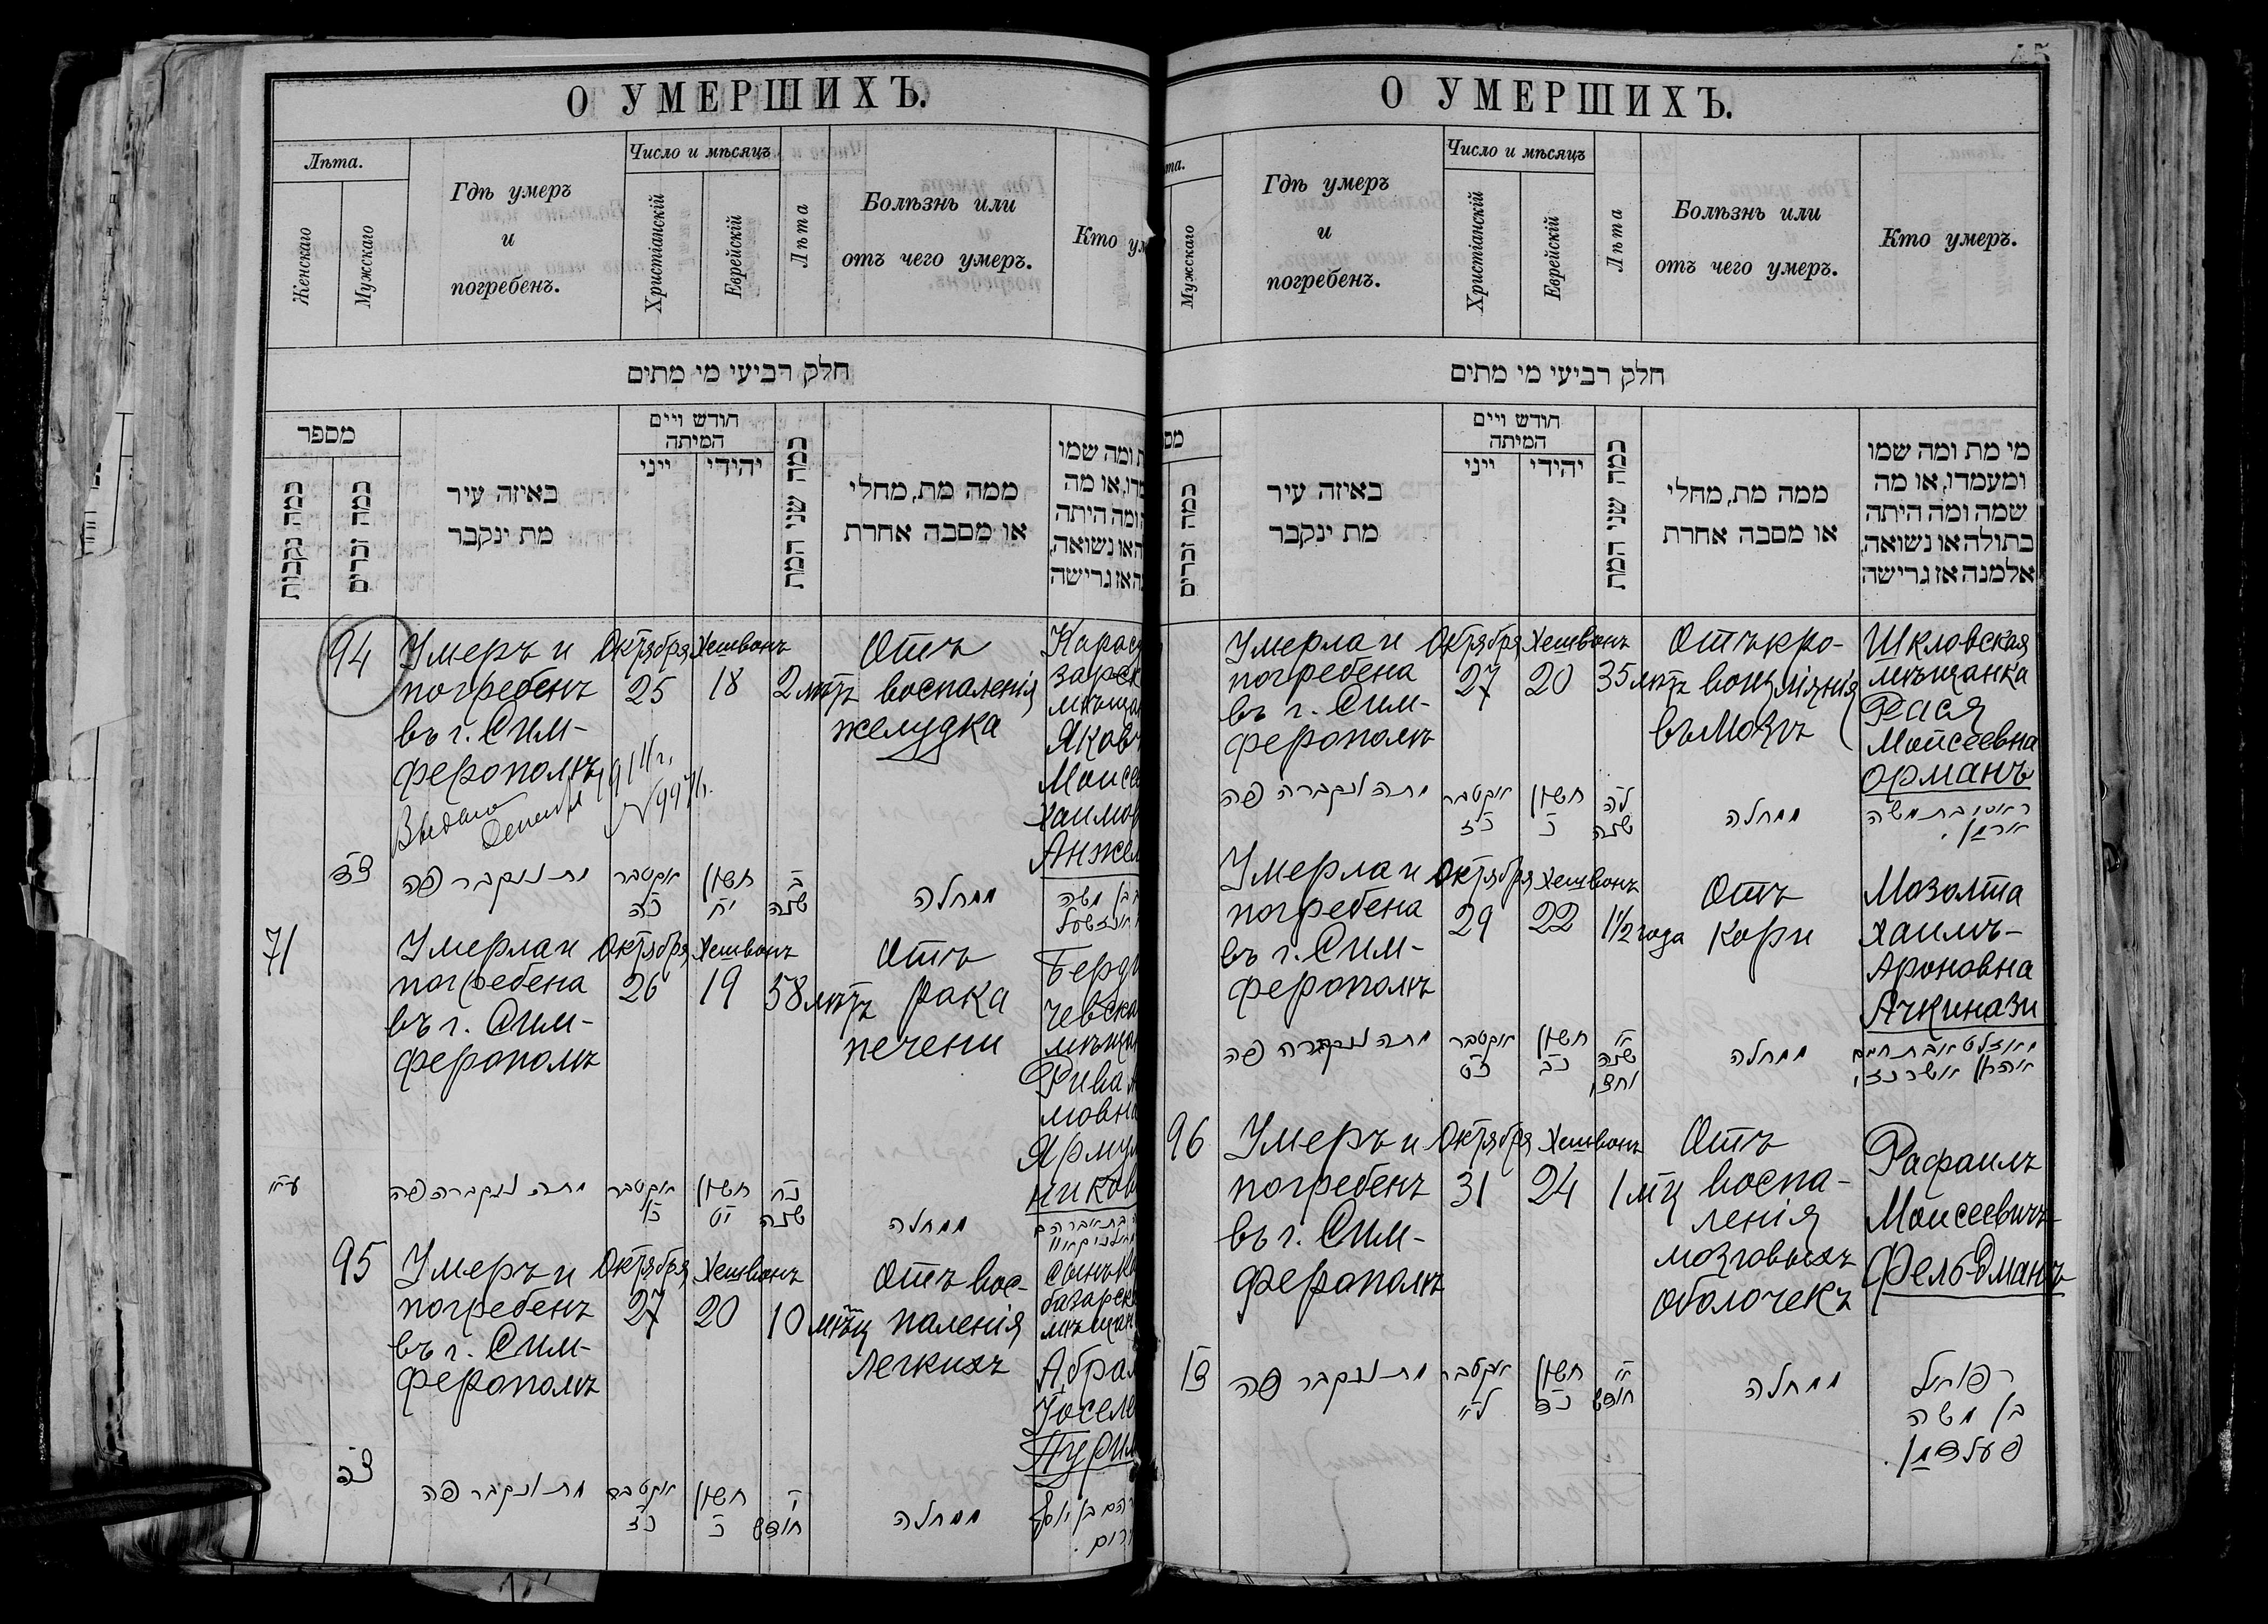 О УМЕРШИХЪ.
Лѣта.
Женскаго
Мужскаго
Гдѣ умеръ
и
погребенъ.
Число и мѣсяцъ
Христіанскій
Еврейскій
Лѣта
Болѣзнь или
отъ чего умеръ.
Кто ум
חלק רביעי מי מתים
מספר
כמה נקבות
כמה זכרים
באיזה עיר
מת ינקבר
חודש ויים
המיתה
ייני
יהודי
כמה שני המת
ממה מת, מחלי
או מסבה אחרת
ת ומה שמו
מדו, או מה
ומה היתה
ה או נשואה,
ה אז גרישה
94
Умеръ и
погребенъ
въ г. Сим-
ферополѣ
Выдано
1911 г.
Октября
25
Хешвонъ
18
2 лѣтъ
Отъ
воспаленія
желудка
Карас
зарск
мѣщан
Яковъ
Моисе
Хаимов
Анжел
צד
מת ונקבר פה
אקטבר
כה
חשון
יח
ב
שנה
ממחלה
בן משה
71
Умерла и
погребена
въ г. Сим-
ферополѣ
Октября
26
Хешвонъ
19
58 лѣтъ
Отъ
рака
печени
Берди
чевска
мѣщан
Рива А
мовна
Ярмул
никова
עא
מתה ונקברה פה
אקטבר
כו
חשון
יט
נח
שנה
ממחלה
בת אברהם
95
Умеръ и
погребенъ
въ г. Сим-
ферополѣ
Октября
27
Хешвонъ
20
10 мѣсц
Отъ вос-
паленія
легкихъ
сынъ Ка
базарск
мѣщан
Абрам
Іоселе
Пурим
צה
מת ונקבר פה
אקטבר
כז
חשון
כ
י
חודש
ממחלה
רהם בן יוסף
ורים.
45
О УМЕРШИХЪ.
та.
Мужскаго
Гдѣ умеръ
и
погребенъ.
Число и мѣсяцъ
Христіанскій
Еврейскій
Лѣта
Болѣзнь или
отъ чего умеръ.
Кто умеръ.
חלק רביעי מי מתים
מס
כמה זכרים
באיזה עיר
מת ינקבר
חודש ויים
המיתה
ייני
יהודי
כמה שני המת
ממה מת, מחלי
או מסבה אחרת
מי מת ומה שמו
ומעמדו, או מה
שמה ומה היתה
בתולה או נשואה,
אלמנה אז גרישה
Умерла и
погребена
въ г. Сим-
ферополѣ
Октября
27
Хешвонъ
20
35 лѣтъ
Отъ кро-
воизліянія
въ Мозгъ
Шкловская
мѣщанка
Рася
Мойсеевна
Орманъ
מתה ונקברה פה
אקטבר
כז
חשון
כ
לה
שנה
ממחלה
ראסי בת משה
ארמן.
Умерла и
погребена
въ г. Сим-
ферополѣ
Октября
29
Хешвонъ
22
1 1/2 года
Отъ
Кори
Мазолта
Хаимъ-
Ароновна
Ачкинази
מתה ונקברה פה
אקטבר
כט
חשון
כב
א
שנה
וחצי
ממחלה
מאזלטא בת חיים
אהרן אשכנזי
96
Умеръ и
погребенъ
въ г. Сим-
ферополѣ
Октября
31
Хешвонъ
24
1 мѣц
Отъ
воспа-
ленія
мозговыхъ
оболочекъ
Рафаилъ
Моисеевичъ
Фельдманъ
צו
מת ונקבר פה
אקטבר
לא
חשון
כד
א
חודש
ממחלה
רפאיל
בן משה
פעלדמן.